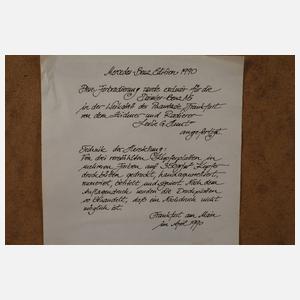 Mercedes Benz Edition 1990
Diese Farbradierung wurde exklusiv für die
Daimler-Benz AG
in der Werkstatt des Frankfurt
von dem Zeichner und Radierer
angefertigt
Technik der Herstellung:
Von drei verstählten Kupferplatten in
mehreren Farben auf Kupfer-
druckbütten gedruckt, handaquarelliert,
numeriert, betitelt und signiert. Nach dem
Auflagendruck werden die Druckplatten
so behandelt, daß ein Nachdruck nicht
möglich ist.
Frankfurt am Main
im April 1990